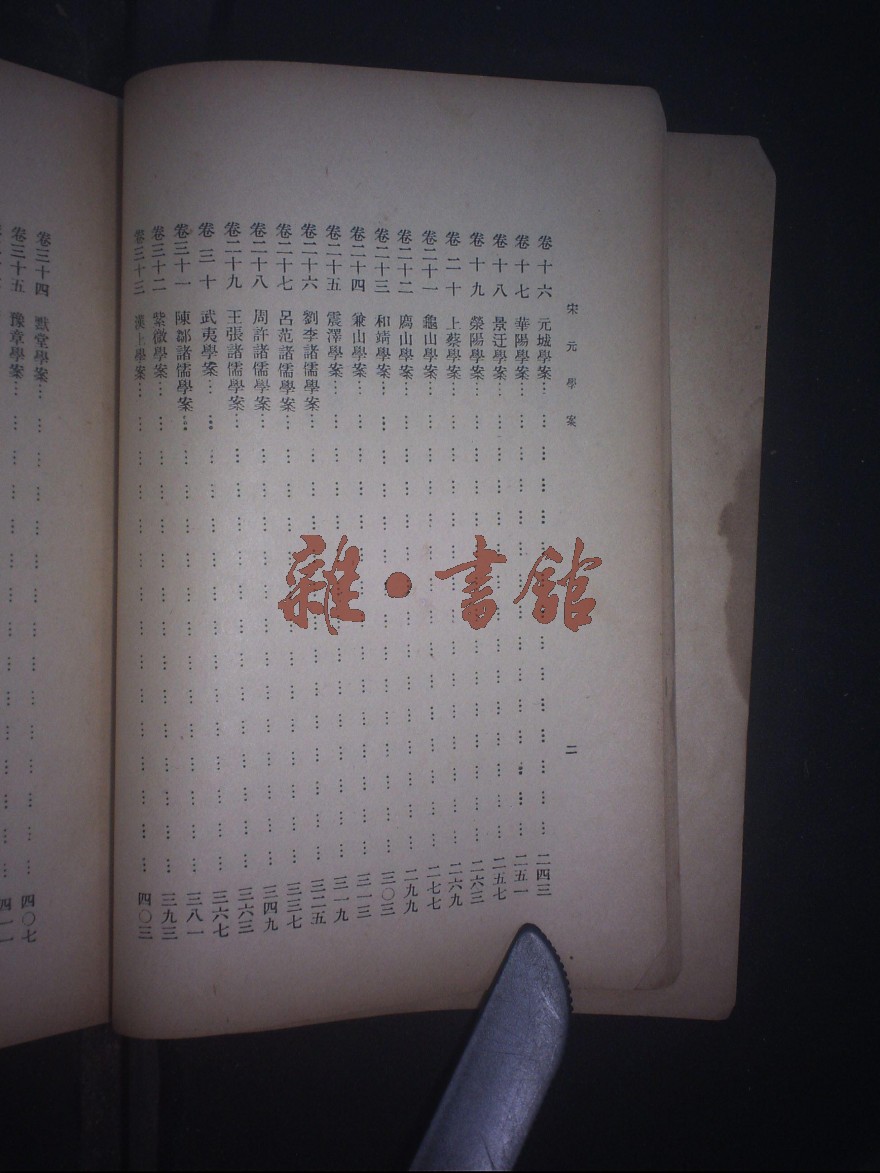 宋元學案
二
卷十六 元城學案 二四三
卷十七 華陽學案 二五一
卷十八 景迂學案 二五七
卷十九 滎陽學案 二六三
卷二十 上蔡學案 二六九
卷二十一 龜山學案 二七七
卷二十二 廌山學案 二九九
卷二十三 和靖學案 三〇三
卷二十四 兼山學案 三一三
卷二十五 震澤學案 三一九
卷二十六 劉李諸儒學案 三二五
卷二十七 呂范諸儒學案 三三七
卷二十八 周許諸儒學案 三四九
卷二十九 王張諸儒學案 三六三
卷三十 武夷學案 三六七
卷三十一 陳鄒諸儒學案 三八一
卷三十二 紫微學案 三九三
卷三十三 漢上學案 四〇三
卷三十四 默堂學案 四〇七
卷三十五 豫章學案 四一一
雜·書館